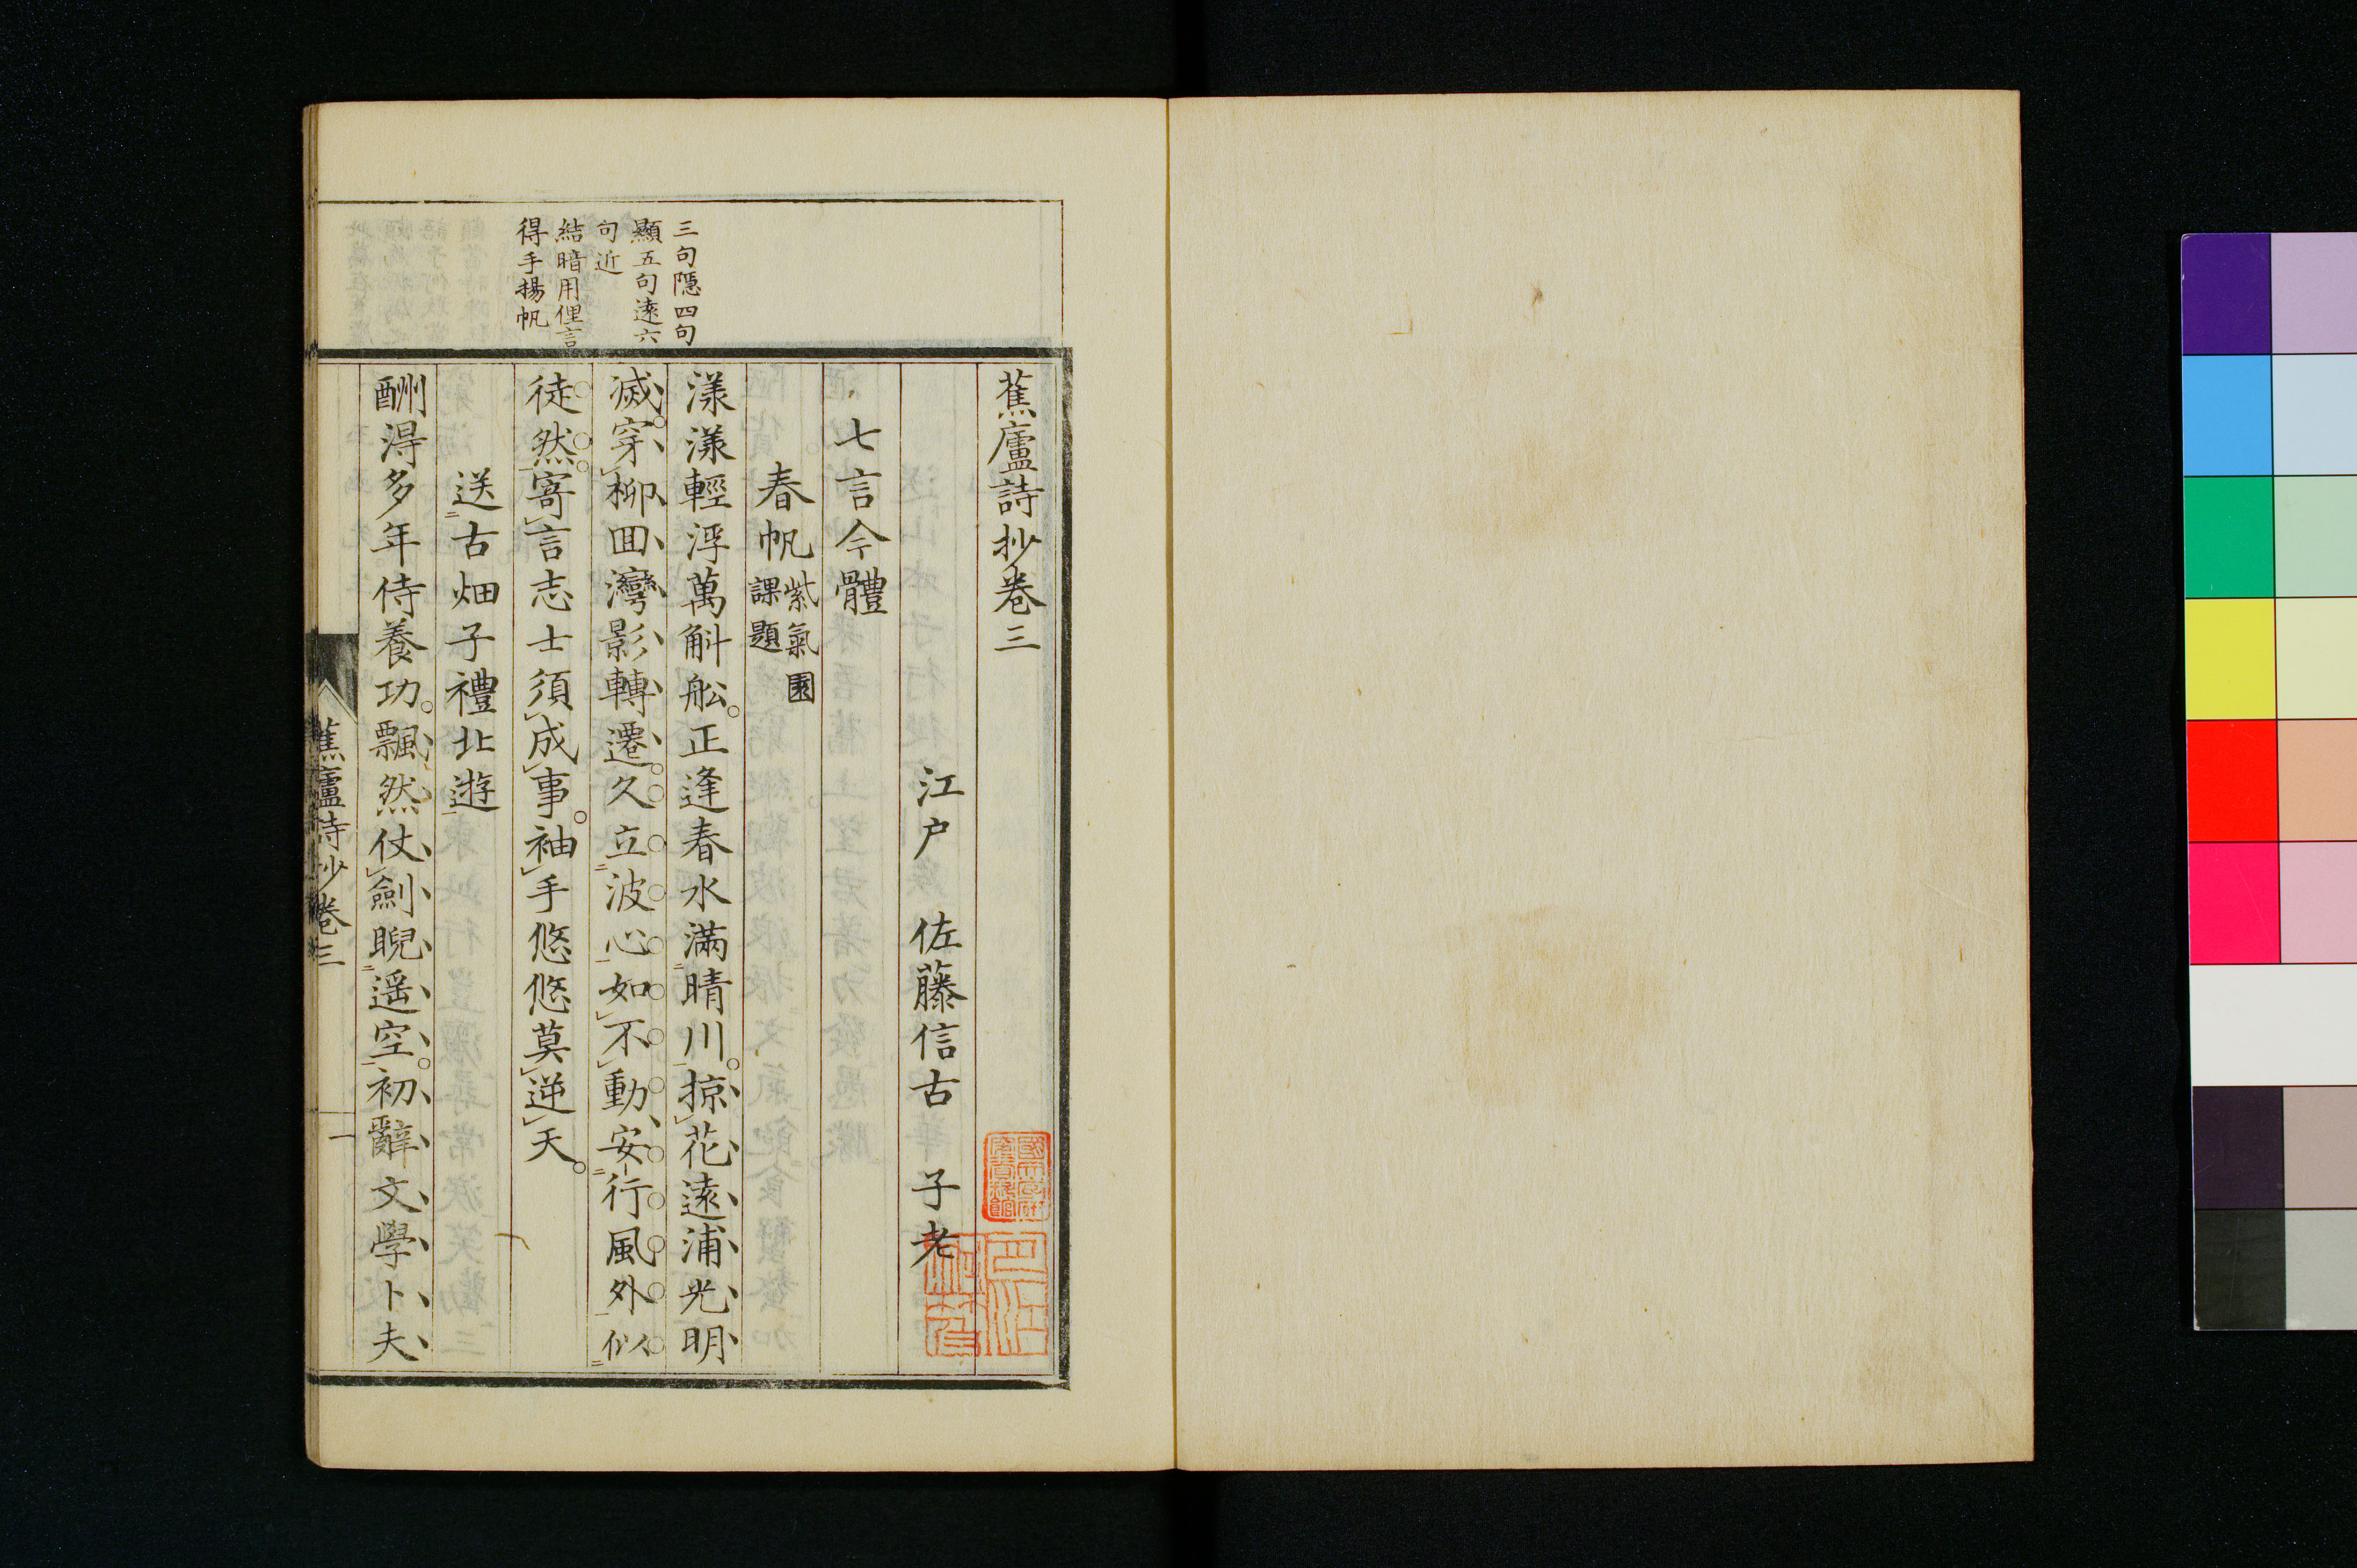 三句隱四句
顯五句遠六
句近
結暗用俚言
得手揚帆
蕉廬詩抄卷三
江戸 佐藤信古 子老
七言今體
春帆 紫氣園
課題
漾漾輕浮萬斛舩。正逢春水滿晴川。掠花遠浦光明
滅。穿柳回灣影轉遷。久立波心如不動、安行風外似
徒然。寄言志士須成事。袖手悠悠莫逆天。
送古畑子禮北遊
酬得多年侍養功。飄然仗劍睨遥空。初辭文學卜夫
蕉廬詩抄卷三
一